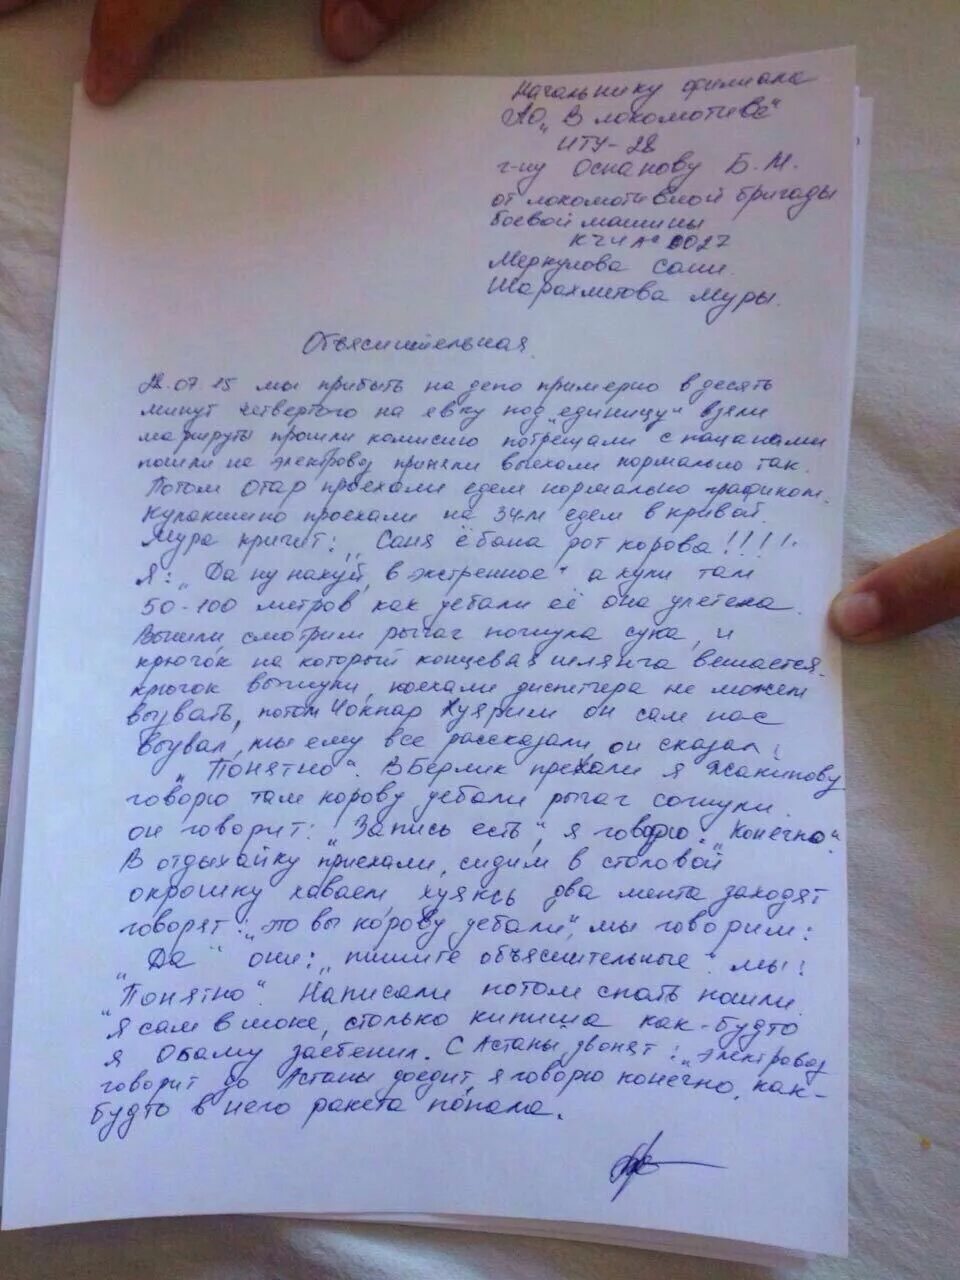 Начальнику филиала
АО „В локомотиве"
ИТУ-28
г-ну Оспанову Б.М.
от локомотивной бригады
боевой машины
KZ4A № 0027
Меркулова Сани.
Шарахметова Муры.
Объяснительная.
22.07.15 мы прибыть на депо примерно в десять
минут четвертого на явку под „единицу" взяли
маршруты прошли комисию потрещали с пацанами
пошли на электровоз приняли выехали нормально так.
Потом Отар проехали едем нормально графиком.
Кулакшино проехали на 34-м едем в кривой.
Мура кричит: „Саня ёбана рот корова!!!!".
Я: „Да ну нахуй, в экстренное" а хули там
50-100 метров, как уебали её она улетела.
Вышли смотрим рычаг погнула сука, и
крючок на который концевая шлянга вешается.
крючок выгнули, поехали диспетчера не можем
вызвать, потом Чокпар хуярим он сам нас
вызвал, мы ему все рассказали, он сказал:
„Понятно". В Берлик прехали я Жакипову
говорю там корову уебали рычаг согнули.
он говорит: „Запись есть", я говорю: „Конечно".
В отдыхайку приехали, сидим в столовой
окрошку хаваем хуяксь два мента заходят
говорят: „то вы корову уебали", мы говорим:
„Да" они: „пишите объяснительные". мы:
„Понятно". Написали потом спать пошли.
„Я сам в шоке, столько кипиша как-будто
я Обаму заебенил. С Астаны звонят: „электровоз
говорит до Астаны доедит, я говорю конечно, как-
будто в него ракета попала.